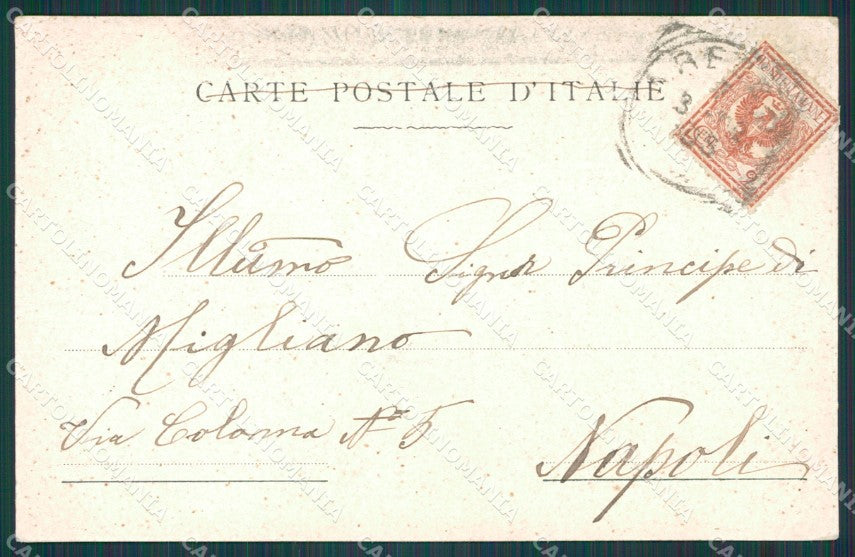 CARTE POSTALE D'ITALIE
Illumo Signr Principe di
Migliano
Via Colonna No 5
Napoli
CARTOLINOMANIA